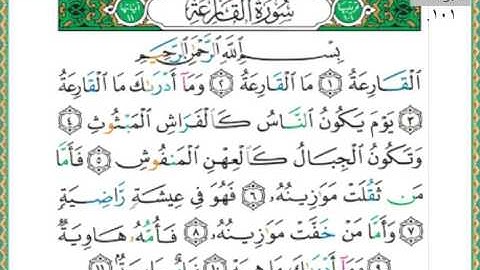 .١٠١
سُورَةُ القَارِعَة
بِسْمِ اللَّهِ الرَّحْمَٰنِ الرَّحِيمِ
الْقَارِعَةُ ۝١ مَا الْقَارِعَةُ ۝٢ وَمَآ أَدْرَىٰكَ مَا الْقَارِعَةُ
۝٣ يَوْمَ يَكُونُ النَّاسُ كَالْفَرَاشِ الْمَبْثُوثِ ۝٤
وَتَكُونُ الْجِبَالُ كَالْعِهْنِ الْمَنفُوشِ ۝٥ فَأَمَّا
مَن ثَقُلَتْ مَوَٰزِينُهُۥ ۝٦ فَهُوَ فِي عِيشَةٍ رَّاضِيَةٍ
۝٧ وَأَمَّا مَنْ خَفَّتْ مَوَٰزِينُهُۥ ۝٨ فَأُمُّهُۥ هَاوِيَةٌ